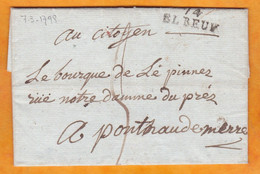 7-3-1798
74
ELBEUF
au citoyen
Le bourque de Lé pinnez
rüé notre daumne du préz
a pontheaudemerre
5